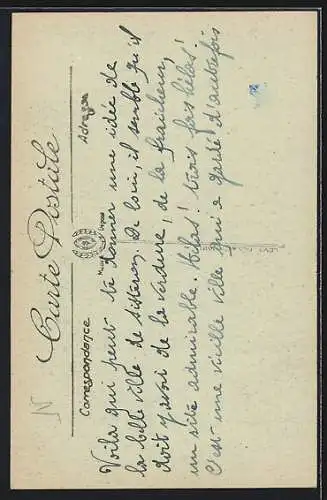 Carte Postale
Correspondance
Adresse
Marque Déposée
Voilà qui peut te donner une idée de
la belle ville de Sisteron. De loin, il semble qu'il
doit y avoir de la verdure, de la fraîcheur,
un site admirable. Hélas! trois fois hélas!
C'est une vieille ville qui a gardé d'autrefois